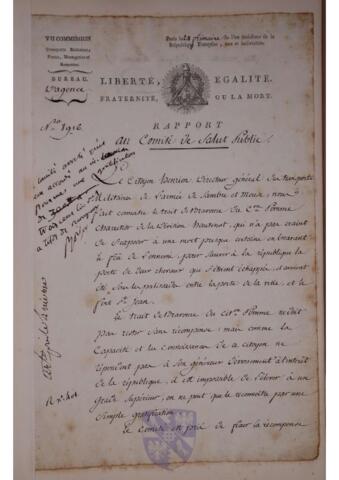 VII COMMISSION
Transports Militaires,
Postes, Messageries et
Remontes.
BUREAU.
L'agence
Paris le frimaire de l'an troisième de la
République Française, une et indivisible.
LIBERTÉ, EGALITÉ,
FRATERNITÉ, OU LA MORT.
RAPPORT
au Comité de Salut Public.
No. 1916
Le Citoyen Henrion Directeur général des transports
Militaires de l'armée de Sambre et Meuse, nous
fait connaitre le trait de bravoure du Cen. Pomme
Charretier de la Division hautmont, qui n'a pas craint
de s'exposer à une mort presque certaine en bravant
le feu de l'ennemi, pour sauver à la république la
perte de deux chevaux qui s'étaient échappés, et avaient
été sous les palissades entre la porte de la ville, et le
fort St. Jean.
Le trait de bravoure du Citen. Pomme ne doit
pas rester sans récompense; mais comme la
Capacité et les connaissances de ce citoyen ne
répondent pas à son généreux dévouement à l'intérêt
de la république, il est impossible de l'élever à un
grade supérieur, on ne peut que le reconnaître par une
simple gratification.
Le Comité est prié de fixer la récompense